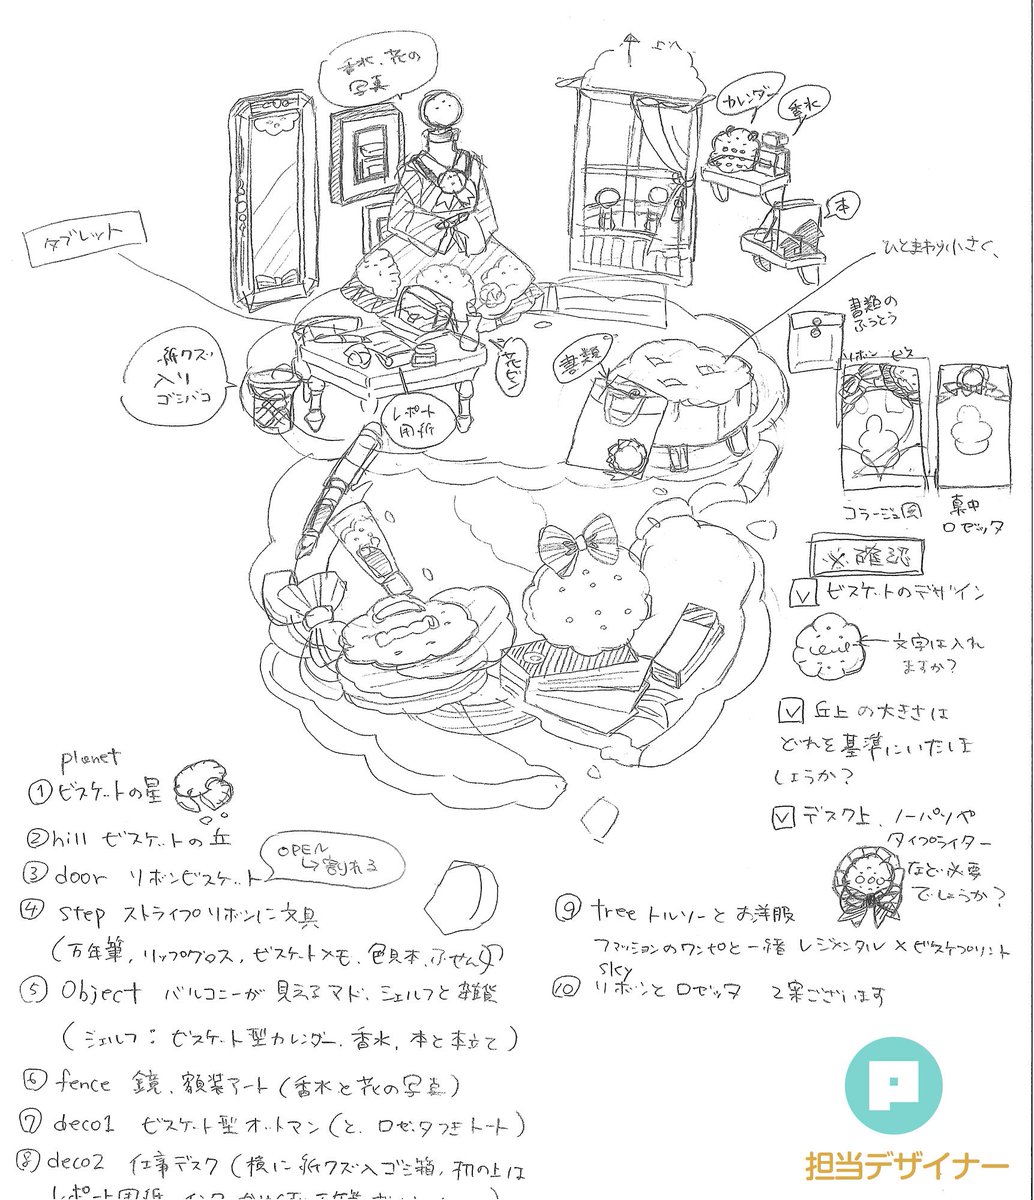 香水、花の
写真
カレンダー
香水
本
タブレット
ひとまわり小さく、
書類の
ふうとう
リボン ビス
紙クズ
入り
ゴミバコ
書類
レポート
用紙
コラージュ図
真中
ロゼッタ
※確認
ビスケットのデザイン
文字は入れ
ますか?
丘上の大きさは
どれを基準にいたしま
しょうか?
デスク上、ノーパソや
タイプライター
など必要
でしょうか?
planet
①ビスケットの星
②hill ビスケットの丘
③door リボンビスケット
OPEN
↳割れる
④step ストライプリボンに文具
(万年筆,リップグロス,ビスケットメモ,色見本,ふせん)
⑤Object バルコニーが見えるマド、シェルフと雑貨
(シェルフ:ビスケット型カレンダー,香水,本と本立て)
⑥fence 鏡、額装アート(香水と花の写真)
⑦deco1 ビスケット型オットマン(と、ロゼッタつきトート)
⑧deco2 仕事デスク(横に紙クズ入ゴミ箱,机の上は
レポート用紙
⑨tree トルソーとお洋服
ファッションのワンピと一緒 レジメンタル×ビスケプリント
sky
⑩リボンとロゼッタ 2案ございます
P
担当デザイナー